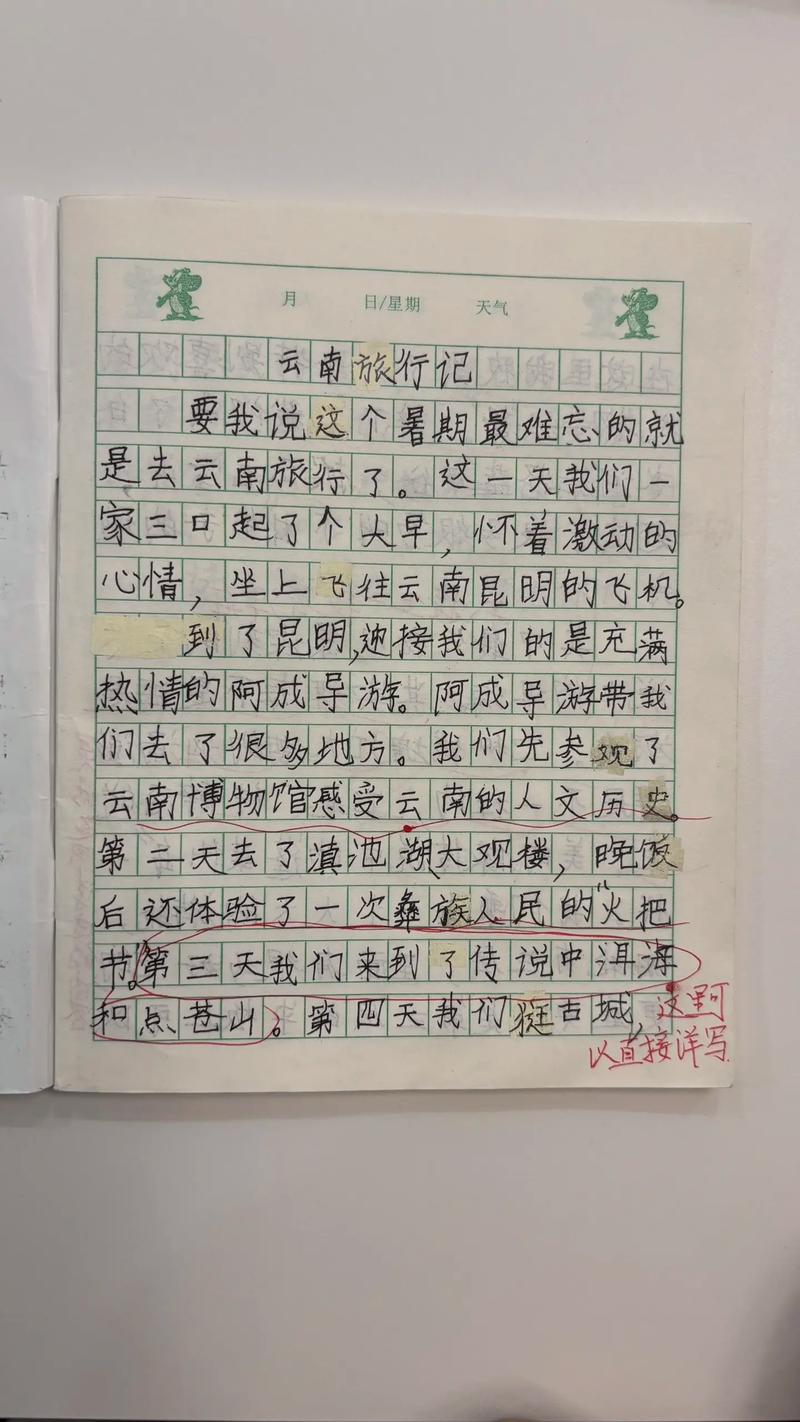 月 日/星期 天气
云南旅行记
要我说这个暑期最难忘的就
是去云南旅行了。这一天我们一
家三口起了个大早，怀着激动的
心情，坐上飞往云南昆明的飞机。
到了昆明，迎接我们的是充满
热情的阿成导游。阿成导游带我
们去了很多地方。我们先参观了
云南博物馆感受云南的人文历史。
第二天去了滇池湖、大观楼，晚饭
后还体验了一次彝族人民的“火把
节”。第三天我们来到了传说中洱海
和点苍山。第四天我们逛古城，
这里可
以直接详写